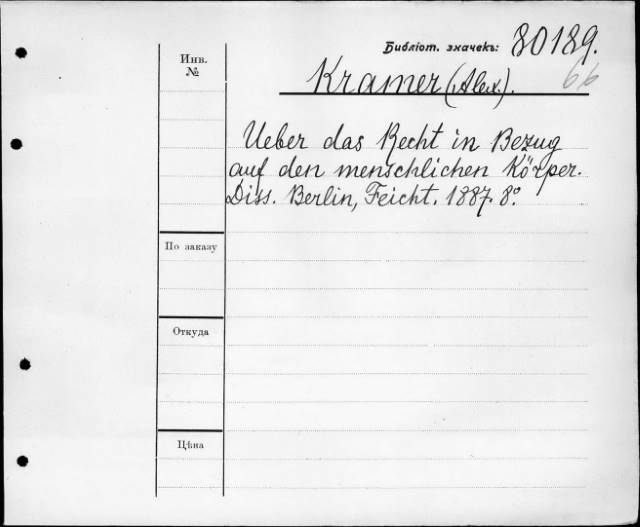 Библіот. значекъ: 80189.
Инв. №
Kramer (Alex.). 66
Ueber das Recht in Bezug
auf den menschlichen Körper.
Diss. Berlin, Feicht. 1887. 8°.
По заказу
Откуда
Цѣна